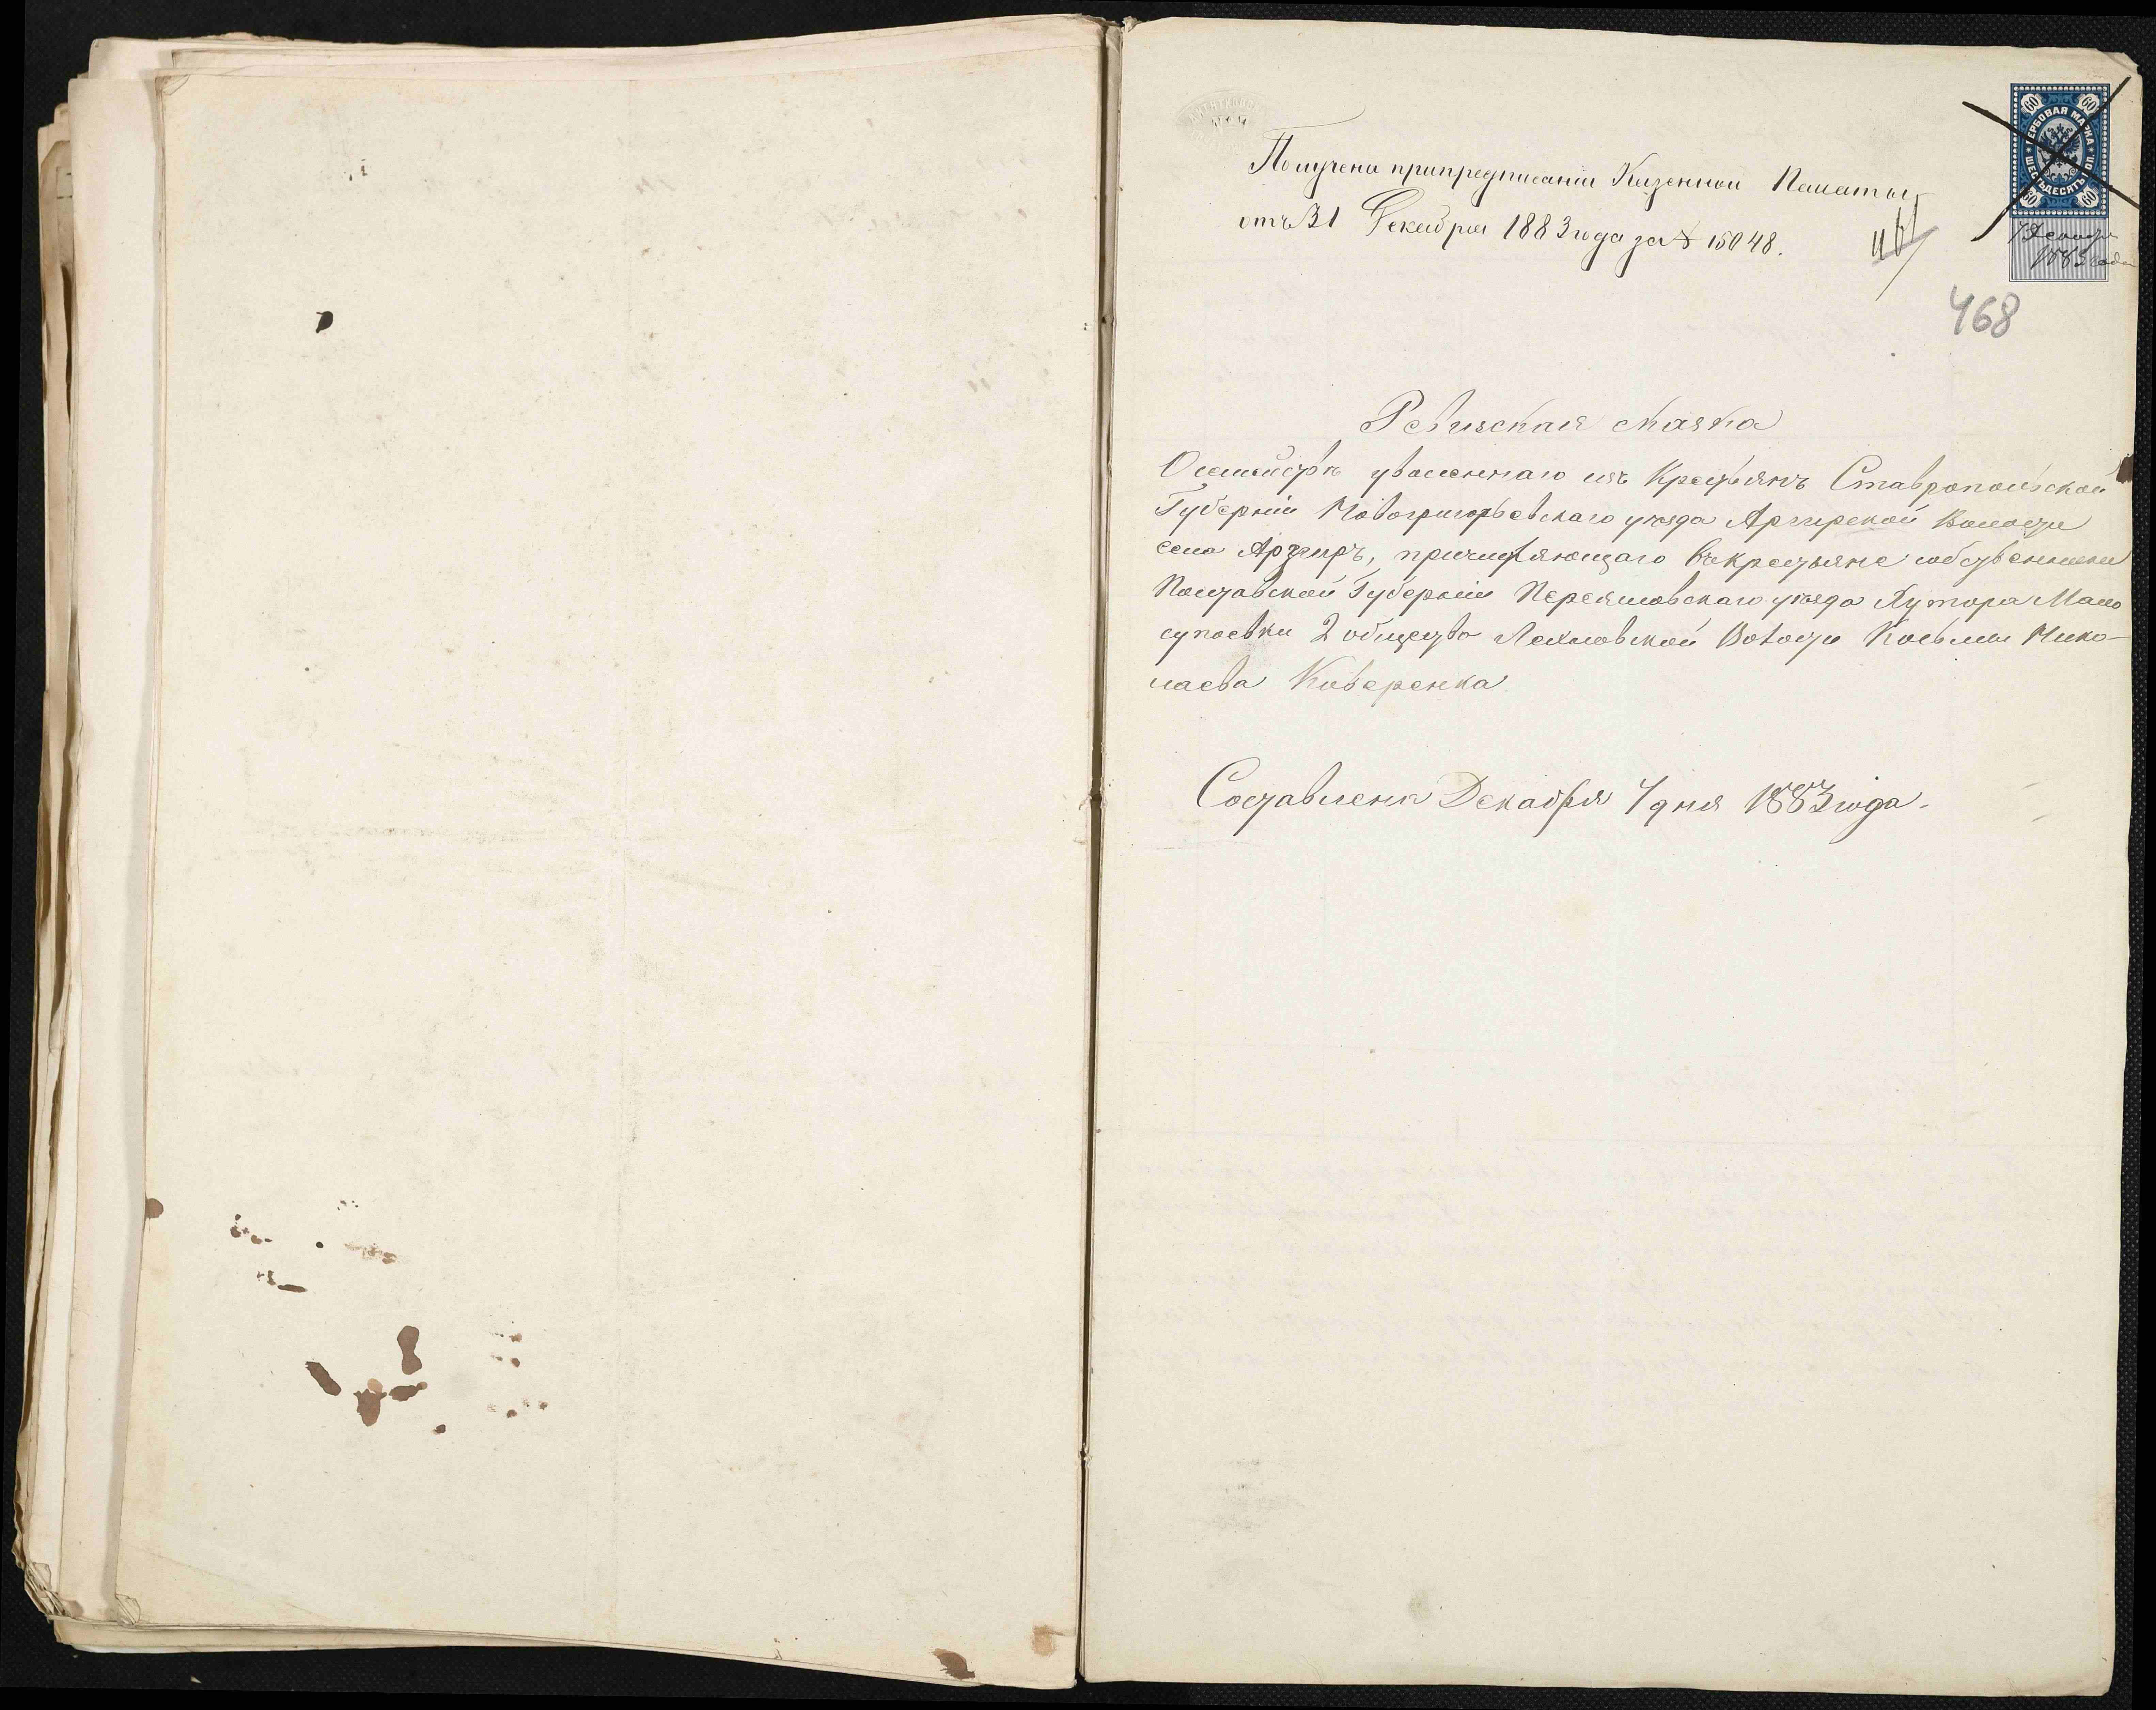 Получена припредписании Казенной Палаты
отъ 31 Декабря 1883 года за № 15048.
ГЕРБОВАЯ МАРКА
ШЕСТЬДЕСЯТЬ КОП.
60 60
60 60
7 Декабря
1883 года
468
Ревизская сказка
О семействѣ уволеннаго изъ Крестьянъ Ставропольской
Губерніи Новогригорьевскаго уѣзда Арзгирской Волости
села Арзгиръ, причисляющаго въ крестьяне собственники
Полтавской Губерніи Переяславскаго уѣзда Хутора Мало
супоевки 2 общества Лехновской Волости Косьмы Нико-
лаева Коверенка
Составлена Декабря 7 дня 1883 года.